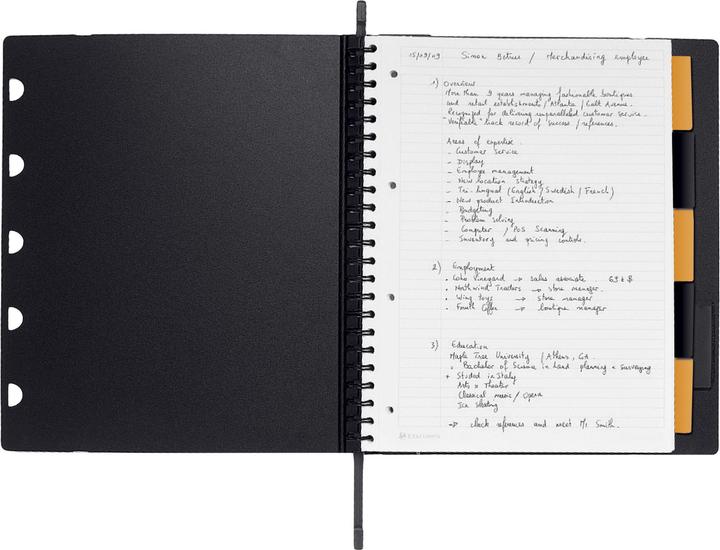 15/09/09 Simon / Merchandising employee
1) Overview
More than 9 years managing fashionable boutiques
and retail establishments / Atlanta / Galt Avenue.
Recognized for delivering unparalleled customer service.
"Verifiable" track record of success / references.
Areas of expertise.
- Customer Service
- Display
- Employee management
- New location strategy
- Tri-lingual (English / Swedish / French)
- New product Introduction
- Budgeting
- Problem solving
- Computer / POS Scanning
- Inventory and pricing controls.
2) Employment
• Coho Vineyard → sales associate.
• Northwind Traders → store manager.
• Wing toys → store manager
• Fourth Coffee → boutique manager
3) Education
Maple Tree University / Athens, GA.
• Bachelor of Science in land planning & surveying
+ Studed in Italy
Arts & Theater
Classical music / Opera
Ice Skating
→ check references and meet Mr Smith.